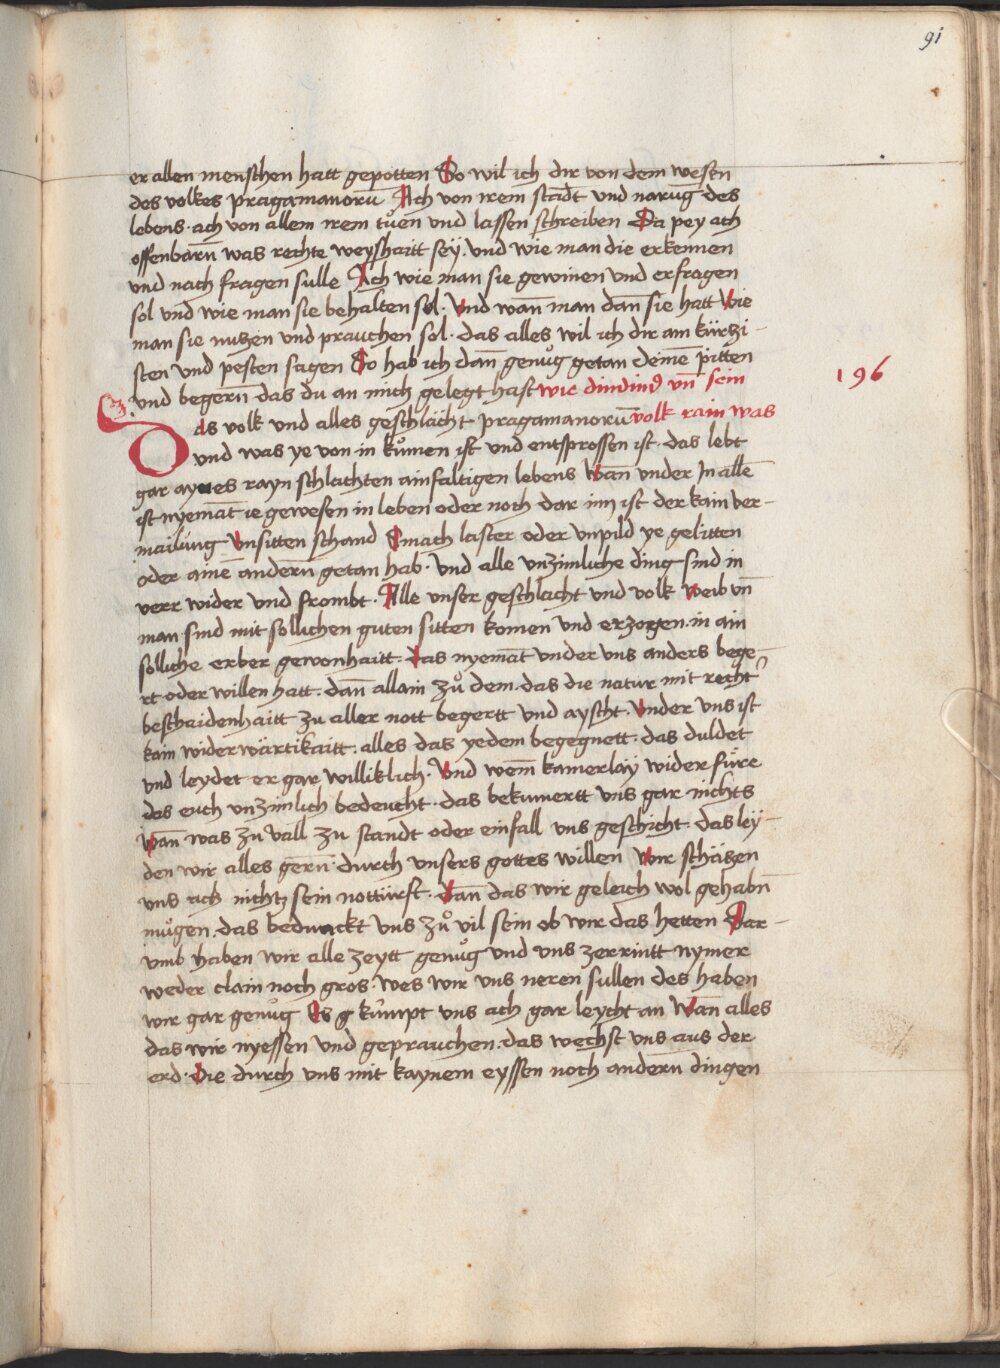 91
er allen menschen hatt gepotten So wil ich dir von dem wesen
des volkes pragamanorū Ach von irem stadt und narūg des
lebens · ach von allem irem tůen und lassen schreiben Da pey ach
offenbarn̄ was rechte weyshaitt seÿ · und wie man die erkennen
und nach fragen sulle Ach wie man sie gewinen und erfragen
sol und wie man sie behalten sol · Und wan̄ man dan sie hatt Wie
man sie nutzen und prauchen sol · das alles wil ich dir am kürtzi-
sten und pesten sagen So hab ich dan̄ genůg getan deinē pitten
und begern̄ das du an mich gelegt hast wie dindimꝰ un̄ sein
196
Das volk und alles geschlächt pragamanorū volk rain was
und was ye von in kůmen ist und entsprossen ist · das lebt
gar aynes rayn schlachten ainfaltigen lebens Wan̄ under In allē
ist nyemāt ie gewesen in leben oder noch dar inn ist der kain ver-
mailūng Unsitten schand Smach laster oder unpild ye gelitten
oder ainē andern̄ getan hab · Und alle unzimliche ding sind in
verr wider und frombt · Alle unser geschlächt und volk Weib un̄
man sind mit sollichen guten sitten komen und erzogen · in ain
solliche erber gewonhaitt · Das nyemāt under uns anders bege-
rt oder willen hatt · dan̄ allain zů dem · das die natur mit recht
beschaidenhaitt zu aller nott begertt und ayscht · Under uns ist
kain widerwärtikaitt · alles das yedem begegnett · das duldet
und leydet er gar williklich · Und wem̄ kamerlaÿ wider füre
das euch unzimlich bedeucht · das bekumertt uns gar nichts
Wan̄ was zu vall zu standt oder einfall uns geschicht · das leÿ-
den wir alles gern̄ durch unsers gottes willen Wir schätzen
uns ach nichtz sein notturft · Dan̄ das wir geleich wol gehabn̄
mügen · das bedunckt uns zů vil sein ob wir das hetten Dar-
umb haben wir alle zeytt genůg und uns zerrintt nymer
weder clain noch gros · wes wir uns neren sullen des haben
wir gar genůg Es g kůmpt uns ach gar leycht an Wan̄ alles
das wir nyessen und geprauchen · das wechst uns aus der
erd · Die durch uns mit kaynem eyssen noch andern̄ dingen